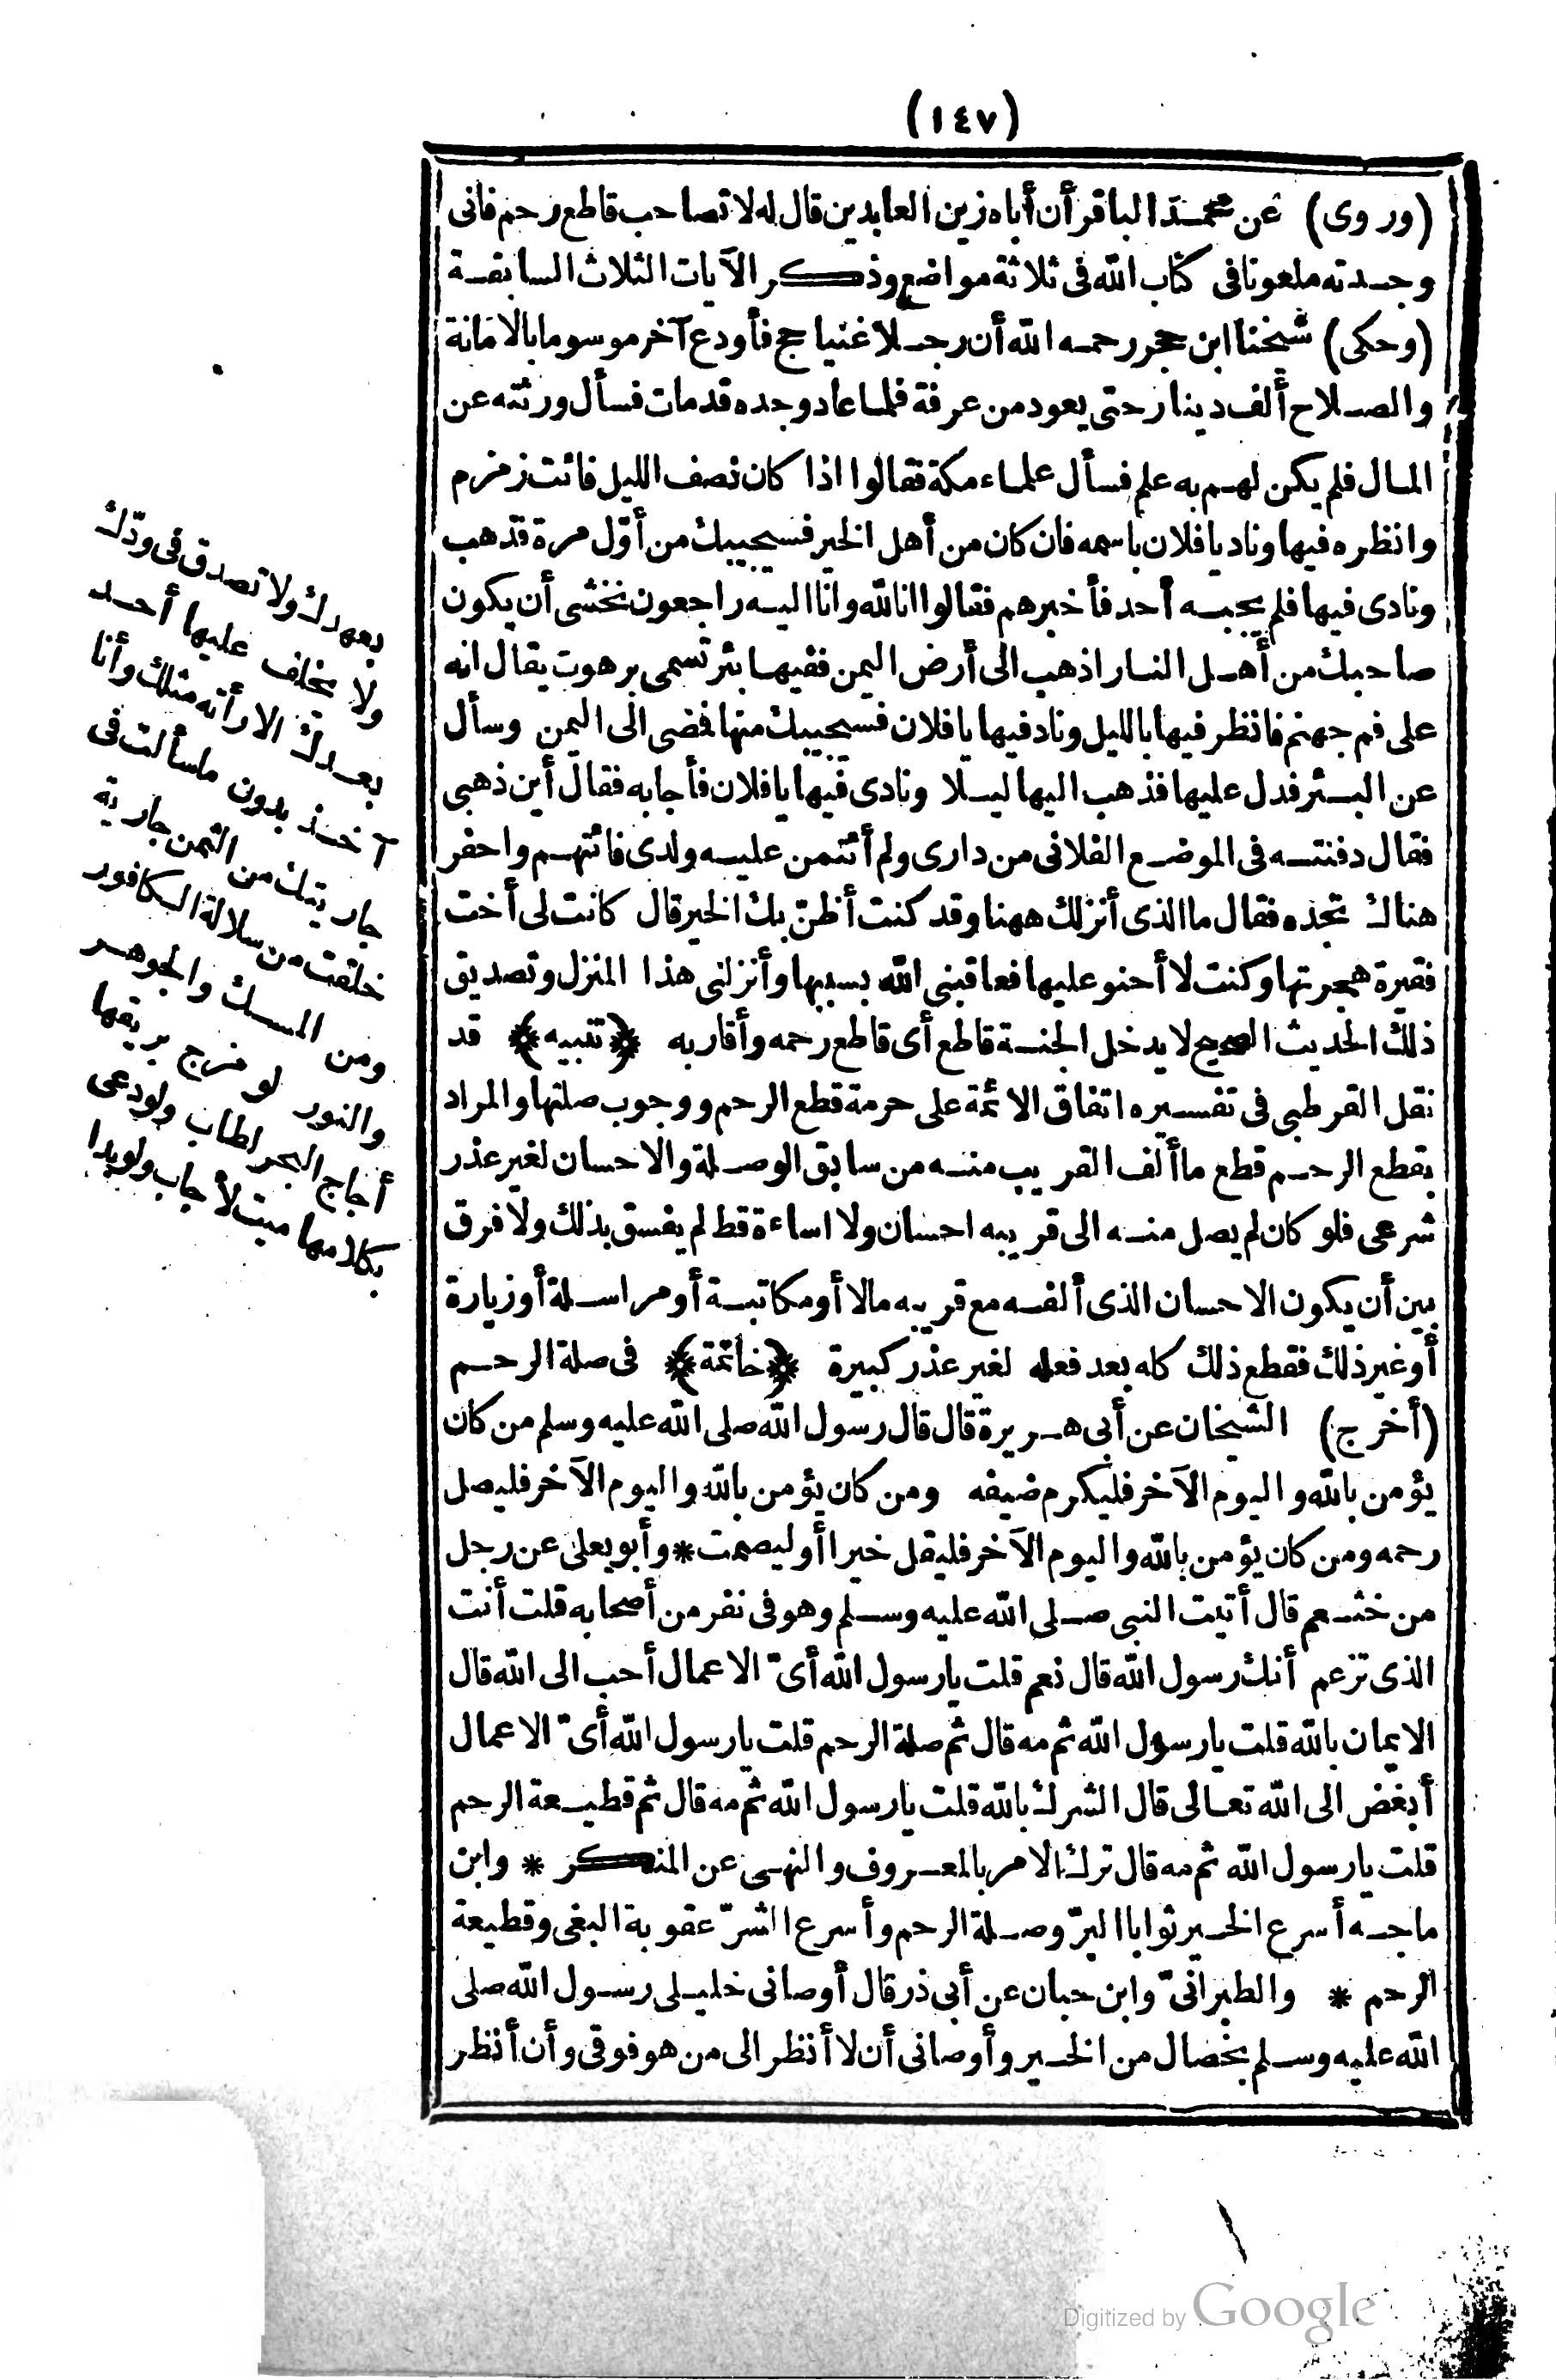 (١٤٧)
(وروى) عن محمد الباقر أن أباه زين العابدين قال له لا تصاحب قاطع رحم فانى
وجدته ملعونا فى كتاب الله فى ثلاثة مواضع وذكر الآيات الثلاث السابقة
(وحكى) شيخنا ابن حجر رحمه الله أن رجلا غنيا حج فأودع آخر موسوما بالامانة
والصلاح ألف دينار حتى يعود من عرفة فلما عاد وجده قد مات فسأل ورثته عن
المال فلم يكن لهم به علم فسأل علماء مكة فقالوا اذا كان نصف الليل فائت زمزم
وانظره فيها وناد يا فلان باسمه فان كان من أهل الخير فسيجيبك من أوّل مرة فذهب
ونادى فيها فلم يجبه أحد فأخبرهم فقالوا انا لله وانا اليه راجعون نخشى أن يكون
صاحبك من أهل النار اذهب الى أرض اليمن ففيها بئر تسمى برهوت يقال انه
على فم جهنم فانظر فيها بالليل وناد فيها يا فلان فسيجيبك منها فمضى الى اليمن وسأل
عن البئر فدل عليها فذهب اليها ليلا ونادى فيها يا فلان فأجابه فقال أين ذهبى
فقال دفنته فى الموضع الفلانى من دارى ولم أئتمن عليه ولدى فائتهم واحفر
هناك تجده فقال ما الذى أنزلك ههنا وقد كنت أظنّ بك الخير قال كانت لى أخت
فقيرة هجرتها وكنت لا أحنو عليها فعاقبنى الله بسببها وأنزلنى هذا المنزل وتصديق
ذلك الحديث الصحيح لا يدخل الجنة قاطع أى قاطع رحمه وأقاربه ﴿تنبيه﴾ قد
نقل القرطبى فى تفسيره اتفاق الائمة على حرمة قطع الرحم ووجوب صلتها والمراد
بقطع الرحم قطع ما ألف القريب منه من سابق الوصلة والاحسان لغير عذر
شرعى فلو كان لم يصل منه الى قريبه احسان ولا اساءة قط لم يفسق بذلك ولا فرق
بين أن يكون الاحسان الذى ألفه مع قريبه مالا أو مكاتبة أو مراسلة أو زيارة
أو غير ذلك فقطع ذلك كله بعد فعله لغير عذر كبيرة ﴿خاتمة﴾ فى صلة الرحم
(أخرج) الشيخان عن أبى هريرة قال قال رسول الله صلى الله عليه وسلم من كان
يؤمن بالله واليوم الآخر فليكرم ضيفه ومن كان يؤمن بالله واليوم الآخر فليصل
رحمه ومن كان يؤمن بالله واليوم الآخر فليقل خيرا أو ليصمت * وأبو يعلى عن رجل
من خثعم قال أتيت النبى صلى الله عليه وسلم وهو فى نفر من أصحابه قلت أنت
الذى تزعم أنك رسول الله قال نعم قلت يا رسول الله أىّ الاعمال أحب الى الله قال
الايمان بالله قلت يا رسول الله ثم مه قال ثم صلة الرحم قلت يا رسول الله أىّ الاعمال
أبغض الى الله تعالى قال الشرك بالله قلت يا رسول الله ثم مه قال ثم قطيعة الرحم
قلت يا رسول الله ثم مه قال ترك الامر بالمعروف والنهى عن المنكر * وابن
ماجه أسرع الخير ثوابا البرّ وصلة الرحم وأسرع الشرّ عقوبة البغى وقطيعة
الرحم * والطبرانىّ وابن حبان عن أبى ذر قال أوصانى خليلى رسول الله صلى
الله عليه وسلم بخصال من الخير وأوصانى أن لا أنظر الى من هو فوقى وأن أنظر
بعهدك ولا تصدق فى ودّك
ولا يخلف عليها أحد
بعدك الا رأته مثلك وأنا
آخذ بدون ما سألت فى
جاريتك من الثمن جارية
خلقت من سلالة الكافور
ومن المسك والجوهر
والنور لو مزج بريقها
أجاج البحر لطاب ولو دعى
بكلامها ميت لأجاب ولو بدا
Digitized by Google